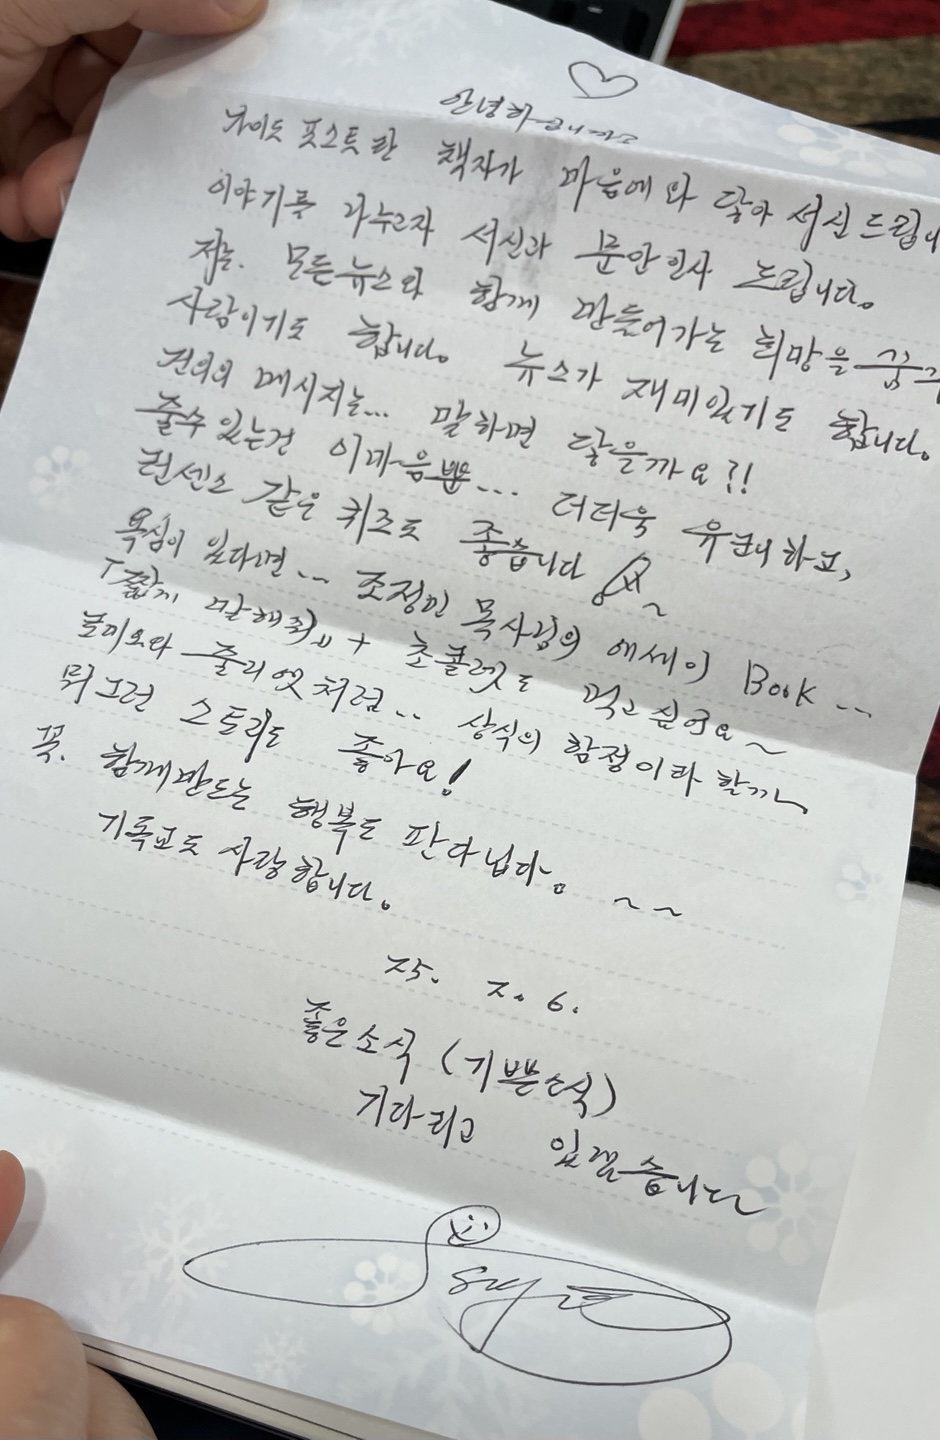 안녕하십니까
가이도 풋스트란 책자가 마음에 와 닿아 서신 드립니
이야기를 나누고자 서신과 문안인사 드립니다.
저는. 모든 뉴스와 함께 만들어가는 희망을 꿈꾸
사람이기도 합니다. 뉴스가 재미있기도 합니다.
건의의 메시지는... 말하면 닿을까요?!
줄수 있는건 이마음뿐... 더더욱 유순하고,
넌센스 같은 퀴즈도 좋습니다
욕심이 있다면... 조정민 목사님의 에세이 Book...
「짧게 말해줘」 + 초콜렛도 먹고 싶어요~
로미오와 줄리엣처럼.. 상식의 함정이라 할까
뭐 그런 스토리도 좋아요!
꼭. 함께만드는 행복도 판다넙다. ~~
기독교도 사랑합니다.
25. 7. 6.
좋은소식 (기쁜소식)
기다리고 있겠습니다